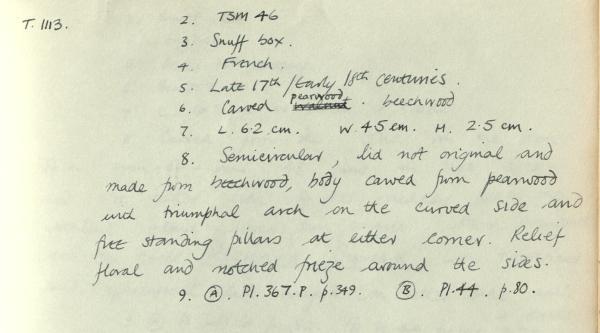 T. 1113. 2. TSM 46
3. Snuff box.
4. French.
5. Late 17th / Early 18th centuries.
6. Carved pearwood walnut. beechwood
7. L. 6.2 cm. W. 4.5 cm. H. 2.5 cm.
8. Semicircular, lid not original and
made from beechwood, body carved from pearwood
with triumphal arch on the curved side and
free standing pillars at either corner. Relief
floral and notched frieze around the sides.
9. A. Pl. 367. P. p. 349. B. Pl. 44. p. 80.